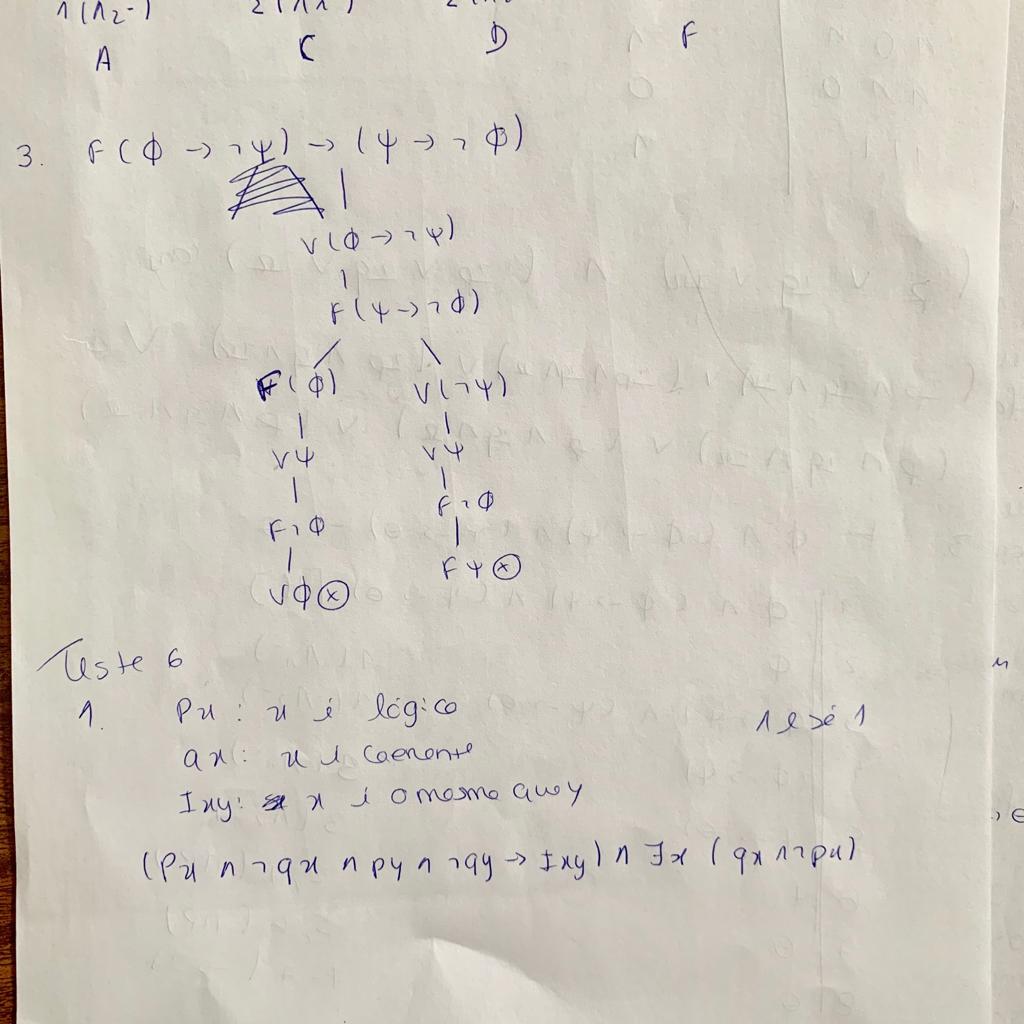 A C D F
3. F(ϕ → ¬ψ) → (ψ → ¬ϕ)
V(ϕ → ¬ψ)
F(ψ → ¬ϕ)
F(ϕ) V(¬ψ)
Vψ Vψ
F¬ϕ F¬ϕ
Vϕ ⓧ Fψ ⓧ
Teste 6
1. Px : x é lógico
1 e só 1
qx : x é coerente
Ixy: x é o mesmo que y
(Px ∧ ¬qx ∧ py ∧ ¬qy → Ixy) ∧ ∃x (qx ∧ ¬px)